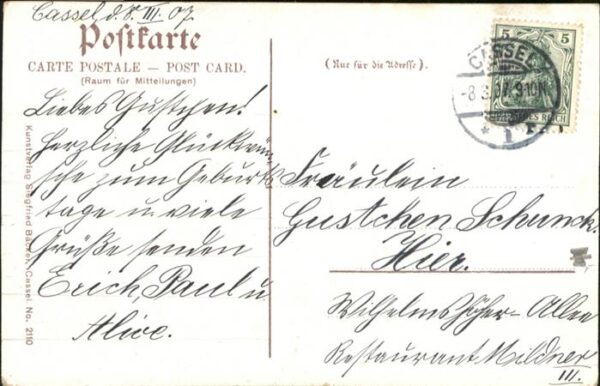 Cassel d. 8. III. 07.
Postkarte
CARTE POSTALE — POST CARD.
(Raum für Mitteilungen)
Liebes Gustchen!
Herzliche Glückwün-
sche zum Geburts
tage u. viele
Grüße senden
Erich, Paul u
Alice.
Kunstverlag Siegfried Cassel. No. 2110
(Nur für die Adresse).
5 5
CASSEL
-8.3.07. 9-10N
* 1
REICH
Fräulein
Gustchen Schunck.
Hier.
Wilhelmshöher-Allee
Restaurant Mildner
III.